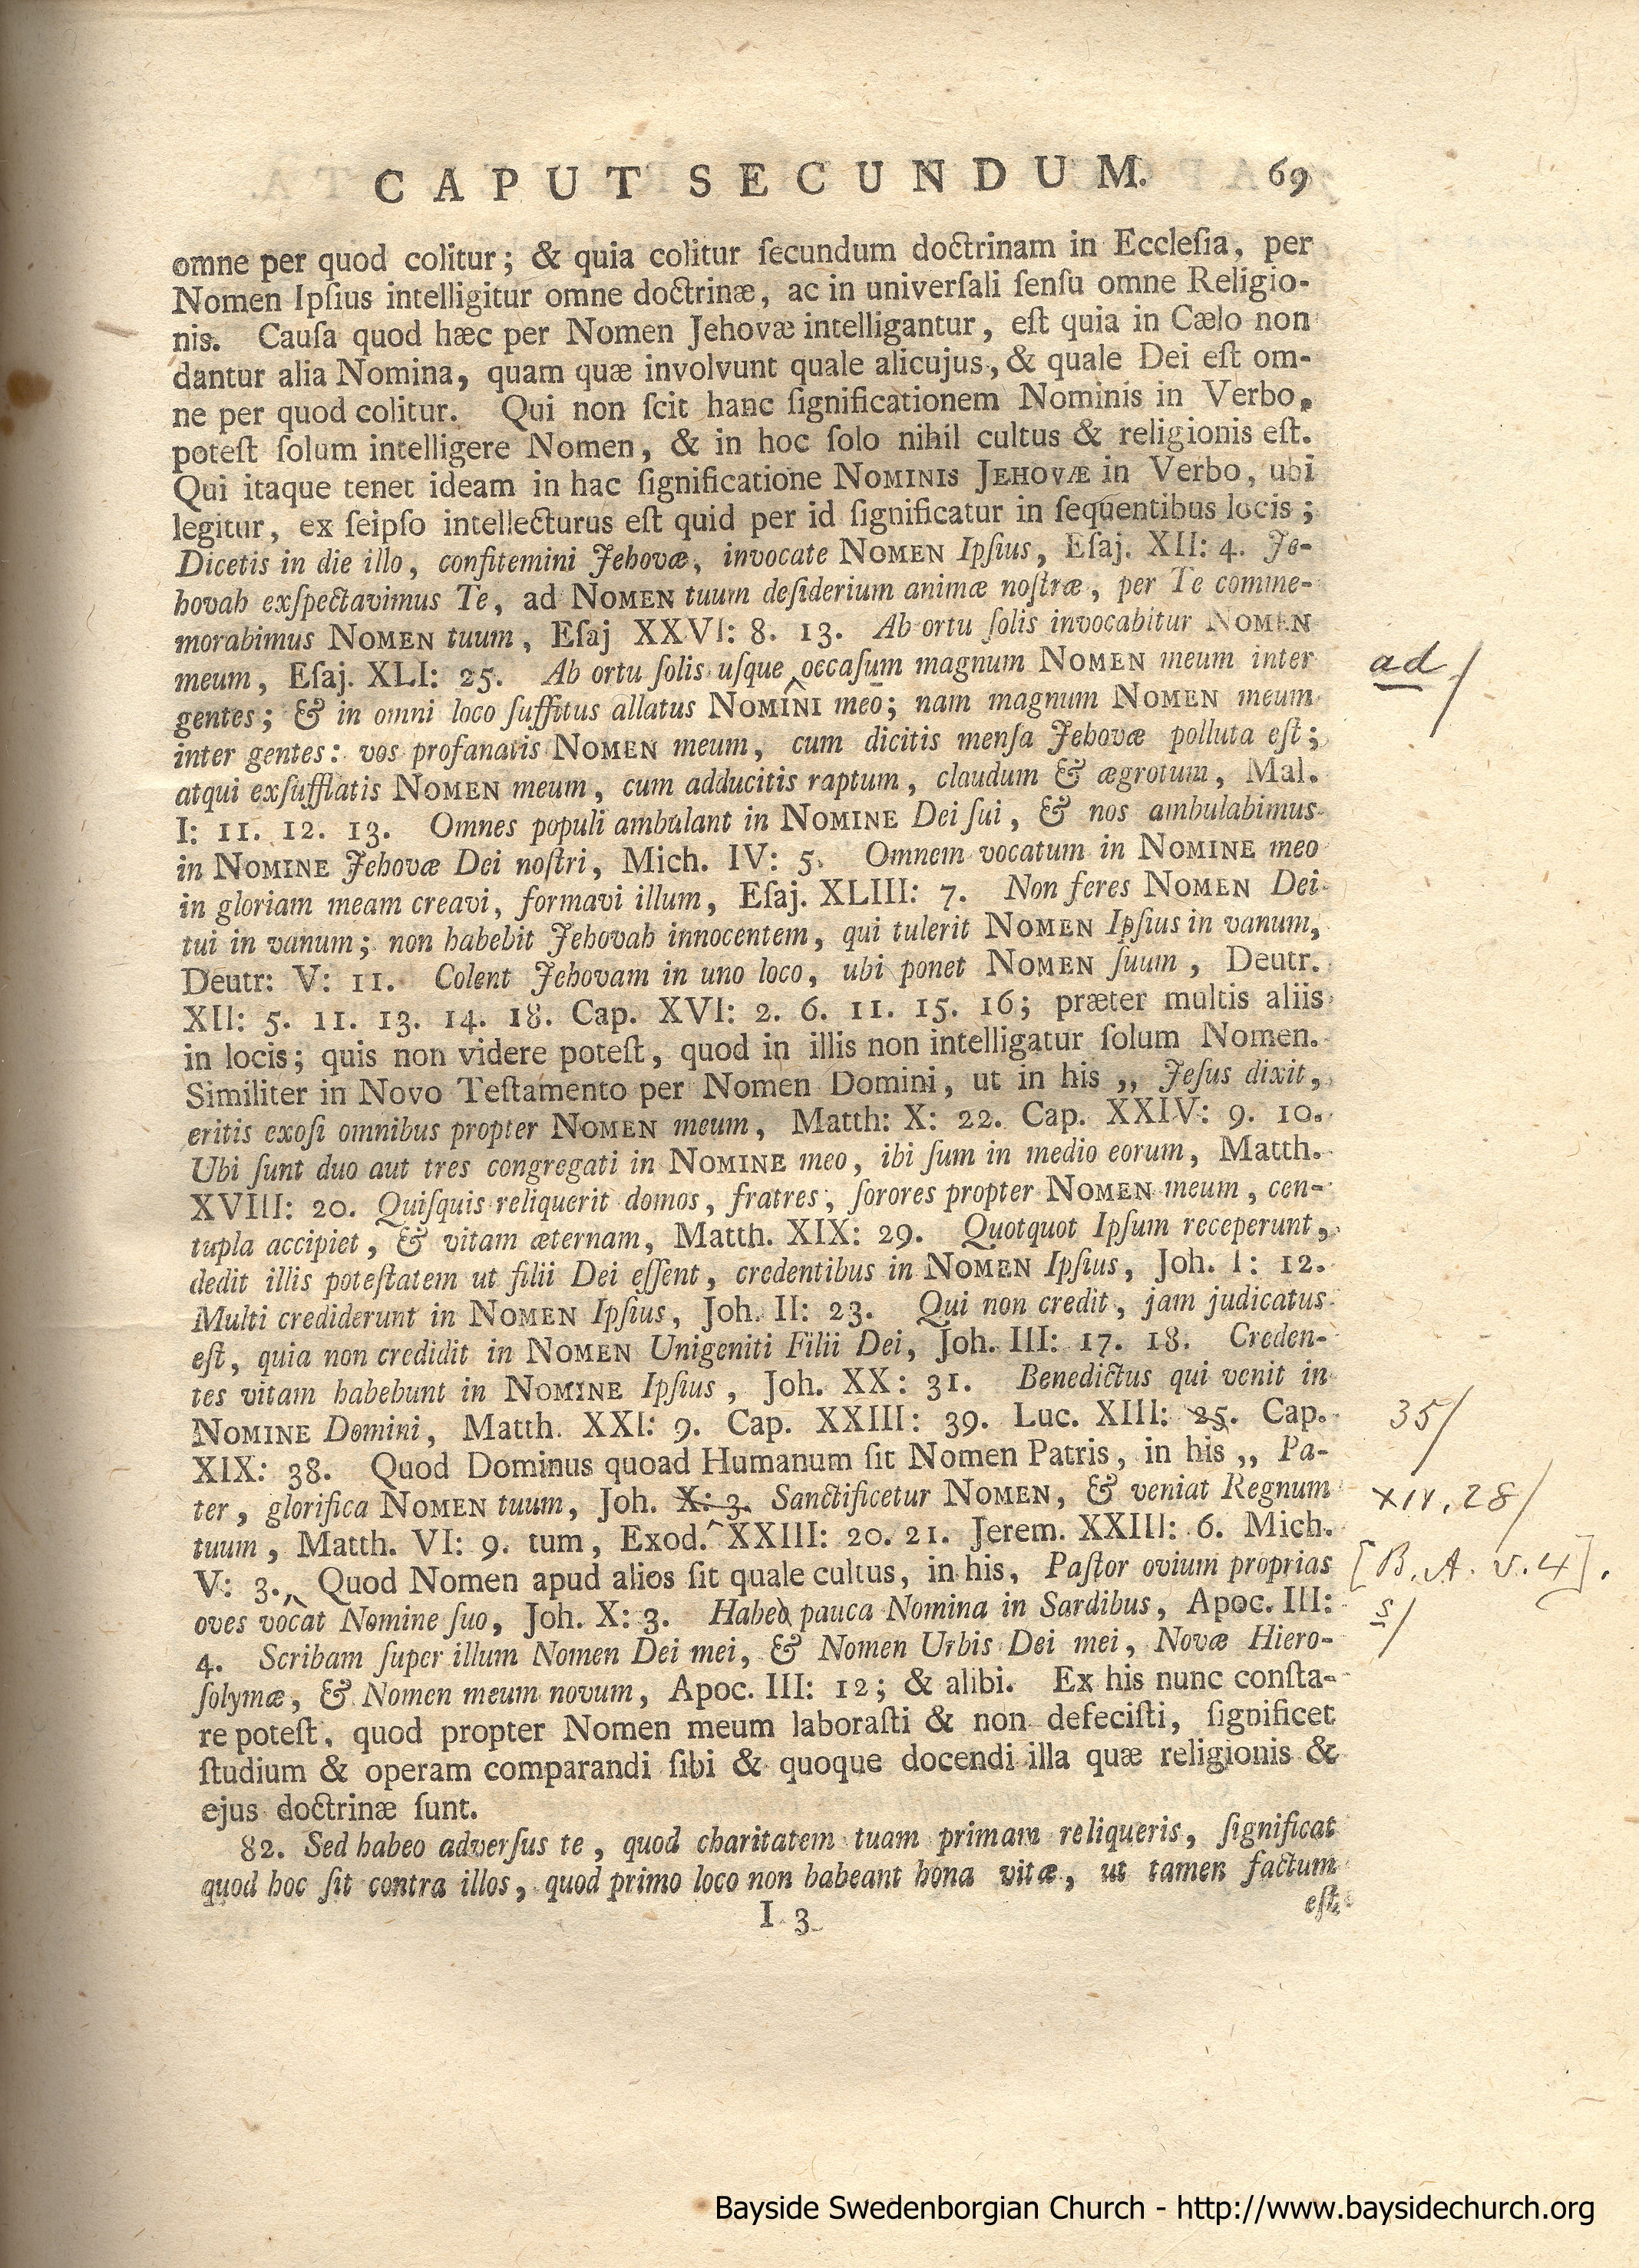 CAPUT SECUNDUM. 69
omne per quod colitur; & quia colitur ſecundum doctrinam in Eccleſia, per
Nomen Ipſius intelligitur omne doctrinæ, ac in univerſali ſenſu omne Religio-
nis. Cauſa quod hæc per Nomen Jehovæ intelligantur, eſt quia in Cælo non
dantur alia Nomina, quam quæ involvunt quale alicujus, & quale Dei eſt om-
ne per quod colitur. Qui non ſcit hanc ſignificationem Nominis in Verbo,
poteſt ſolum intelligere Nomen, & in hoc ſolo nihil cultus & religionis eſt.
Qui itaque tenet ideam in hac ſignificatione NOMINIS JEHOVÆ in Verbo, ubi
legitur, ex ſeipſo intellecturus eſt quid per id ſignificatur in ſequentibus locis;
Dicetis in die illo, confitemini Jehovæ, invocate NOMEN Ipſius, Eſaj. XII: 4. Je-
hovah exſpectavimus Te, ad NOMEN tuum deſiderium animæ noſtræ, per Te comme-
morabimus NOMEN tuum, Eſaj XXVI: 8. 13. Ab ortu ſolis invocabitur NOMEN
meum, Eſaj. XLI: 25. Ab ortu ſolis uſque ‸ occaſum magnum NOMEN meum inter ad/
gentes; & in omni loco ſuffitus allatus NOMINI meo; nam magnum NOMEN meum
inter gentes: vos profanatis NOMEN meum, cum dicitis menſa Jehovæ polluta eſt;
atqui exſufflatis NOMEN meum, cum adducitis raptum, claudum & ægrotum, Mal.
I: 11. 12. 13. Omnes populi ambulant in NOMINE Dei ſui, & nos ambulabimus
in NOMINE Jehovæ Dei noſtri, Mich. IV: 5. Omnem vocatum in NOMINE meo
in gloriam meam creavi, formavi illum, Eſaj. XLIII: 7. Non feres NOMEN Dei
tui in vanum; non habebit Jehovah innocentem, qui tulerit NOMEN Ipſius in vanum,
Deutr: V: 11. Colent Jehovam in uno loco, ubi ponet NOMEN ſuum, Deutr.
XII: 5. 11. 13. 14. 18. Cap. XVI: 2. 6. 11. 15. 16; præter multis aliis
in locis; quis non videre poteſt, quod in illis non intelligatur ſolum Nomen.
Similiter in Novo Teſtamento per Nomen Domini, ut in his ,, Jeſus dixit,
eritis exoſi omnibus propter NOMEN meum, Matth: X: 22. Cap. XXIV: 9. 10.
Ubi ſunt duo aut tres congregati in NOMINE meo, ibi ſum in medio eorum, Matth.
XVIII: 20. Quiſquis reliquerit domos, fratres, ſorores propter NOMEN meum, cen-
tupla accipiet, & vitam æternam, Matth. XIX: 29. Quotquot Ipſum receperunt,
dedit illis poteſtatem ut filii Dei eſſent, credentibus in NOMEN Ipſius, Joh. I: 12.
Multi crediderunt in NOMEN Ipſius, Joh. II: 23. Qui non credit, jam judicatus
eſt, quia non credidit in NOMEN Unigeniti Filii Dei, Joh. III: 17. 18. Creden-
tes vitam habebunt in NOMINE Ipſius, Joh. XX: 31. Benedictus qui venit in
NOMINE Domini, Matth. XXI: 9. Cap. XXIII: 39. Luc. XIII: 25. Cap. 35/
XIX: 38. Quod Dominus quoad Humanum ſit Nomen Patris, in his ,, Pa-
ter, glorifica NOMEN tuum, Joh. X: 3. Sanctificetur NOMEN, & veniat Regnum XII. 28/
tuum, Matth. VI: 9. tum, Exod. ‸ XXIII: 20. 21. Jerem. XXIII: 6. Mich.
V: 3. ‸ Quod Nomen apud alios ſit quale cultus, in his, Paſtor ovium proprias [B. A. v. 4].
oves vocat Nomine ſuo, Joh. X: 3. Habeo pauca Nomina in Sardibus, Apoc. III: s/
4. Scribam ſuper illum Nomen Dei mei, & Nomen Urbis Dei mei, Novæ Hiero-
ſolymæ, & Nomen meum novum, Apoc. III: 12; & alibi. Ex his nunc conſta-
re poteſt, quod propter Nomen meum laboraſti & non defeciſti, ſignificet
ſtudium & operam comparandi ſibi & quoque docendi illa quæ religionis &
ejus doctrinæ ſunt.
82. Sed habeo adverſus te, quod charitatem tuam primam reliqueris, ſignificat
quod hoc ſit contra illos, quod primo loco non habeant bona vitæ, ut tamen factum
I 3 eſt
Bayside Swedenborgian Church - http://www.baysidechurch.org